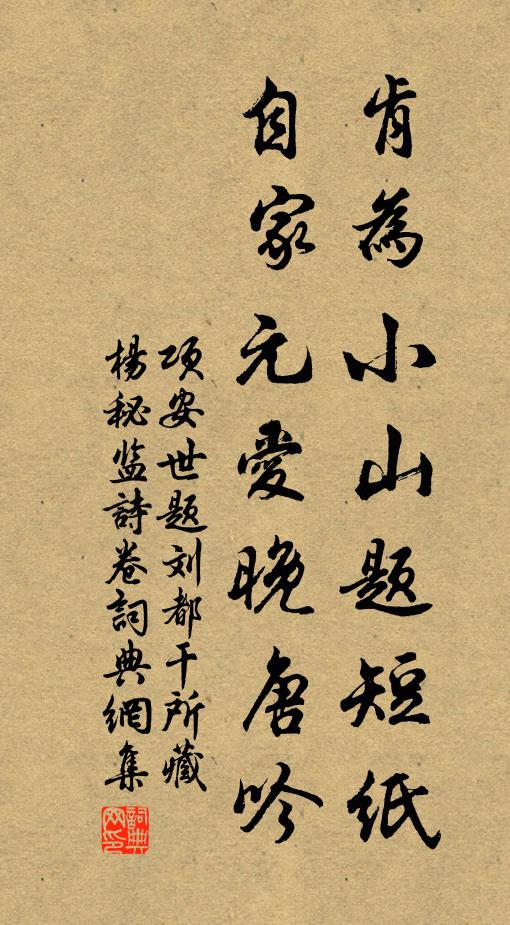 肯為小山题短纸
自家元愛晚唐吟
项安世题刘都干所藏
楊秘监詩卷詞典網集
詞典网印